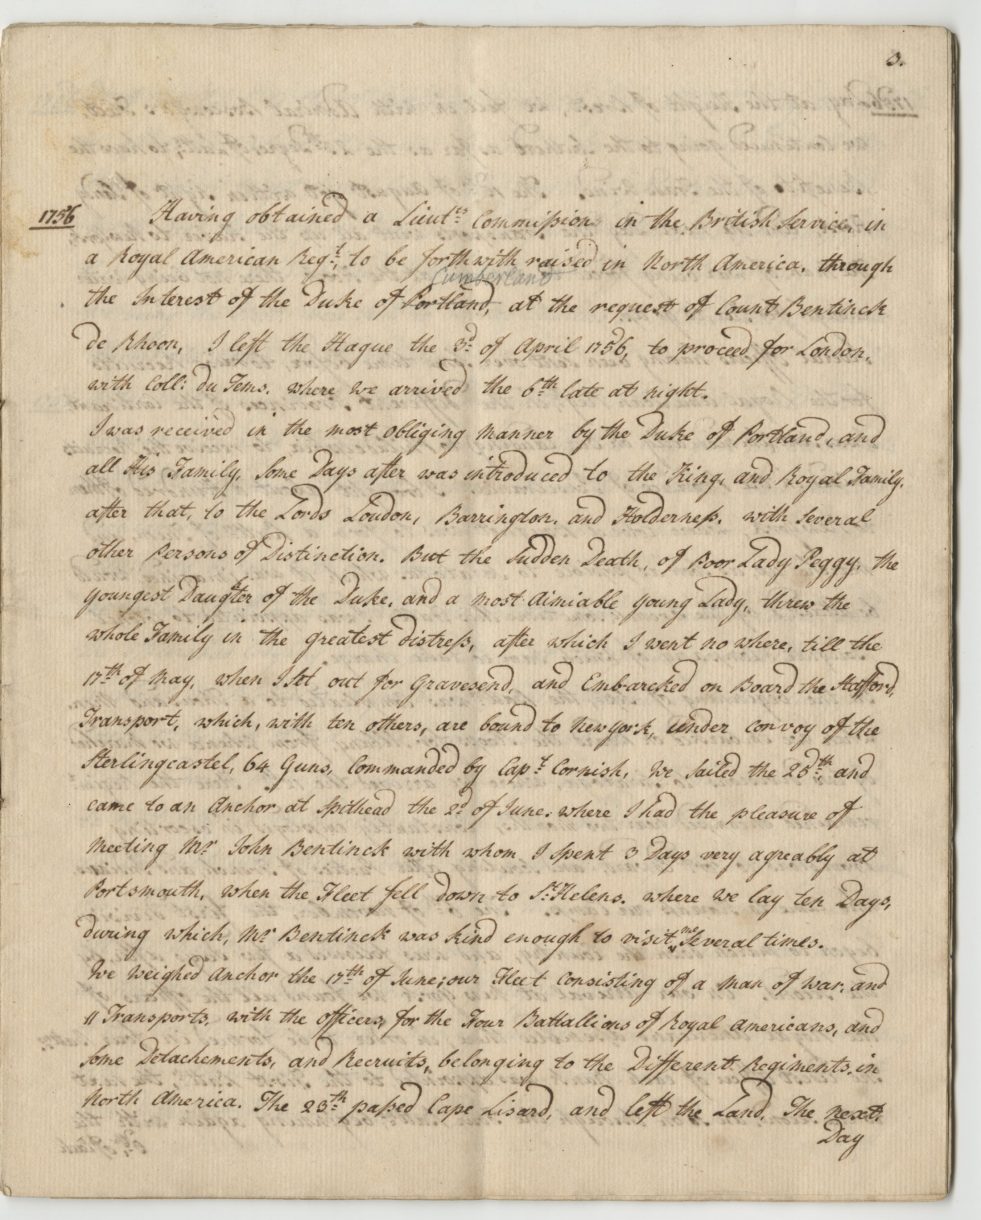 3.
1756 Having obtained a Lieuts. Commission in the British Service, in
a Royal American Regt., to be forthwith raised in North America, through
Cumberland
the Interest of the Duke of Portland, at the request of Count Bentinck
de Rhoon, I left the Hague the 3d. of April 1756, to proceed for London,
with Coll. du Tems. where we arrived the 6th late at night.
I was received in the most obliging manner by the Duke of Portland, and
all His Family, Some Days after was introduced to the King, and Royal Family.
after that, to the Lords Loudon, Barrington, and Holderness, with Several
other Persons of Distinction. But the Sudden Death, of Poor Lady Peggy, the
youngest Daughter of the Duke, and a most Aimiable young Lady, threw the
whole Family in the greatest distress, after which I went no where, till the
17th of May, when I Set out for Gravesend, and Embarcked on Board the Stafford,
Transport, which, with ten others, are bound to New York, under convoy of the
Sterlingcastel, 64 Guns, Commanded by Capt. Cornish, We Sailed the 28th, and
came to an Anchor at Spithead the 2d of June, where I had the pleasure of
Meeting Mr John Bentinck with whom I Spent 3 Days very agreably at
Portsmouth, when the Fleet fell down to St. Helens. where we lay ten Days,
during which, Mr Bentinck was kind enough to visit me Several times.
We weighed Anchor the 17th of June; our Fleet Consisting of a Man of War, and
11 Transports, with the officers, for the Four Battallions of Royal Americans, and
Some Detachements, and Recruits, belonging to the Different Regiments, in
North America. The 23th passed Cape Lisard, and left the Land, The next
Day